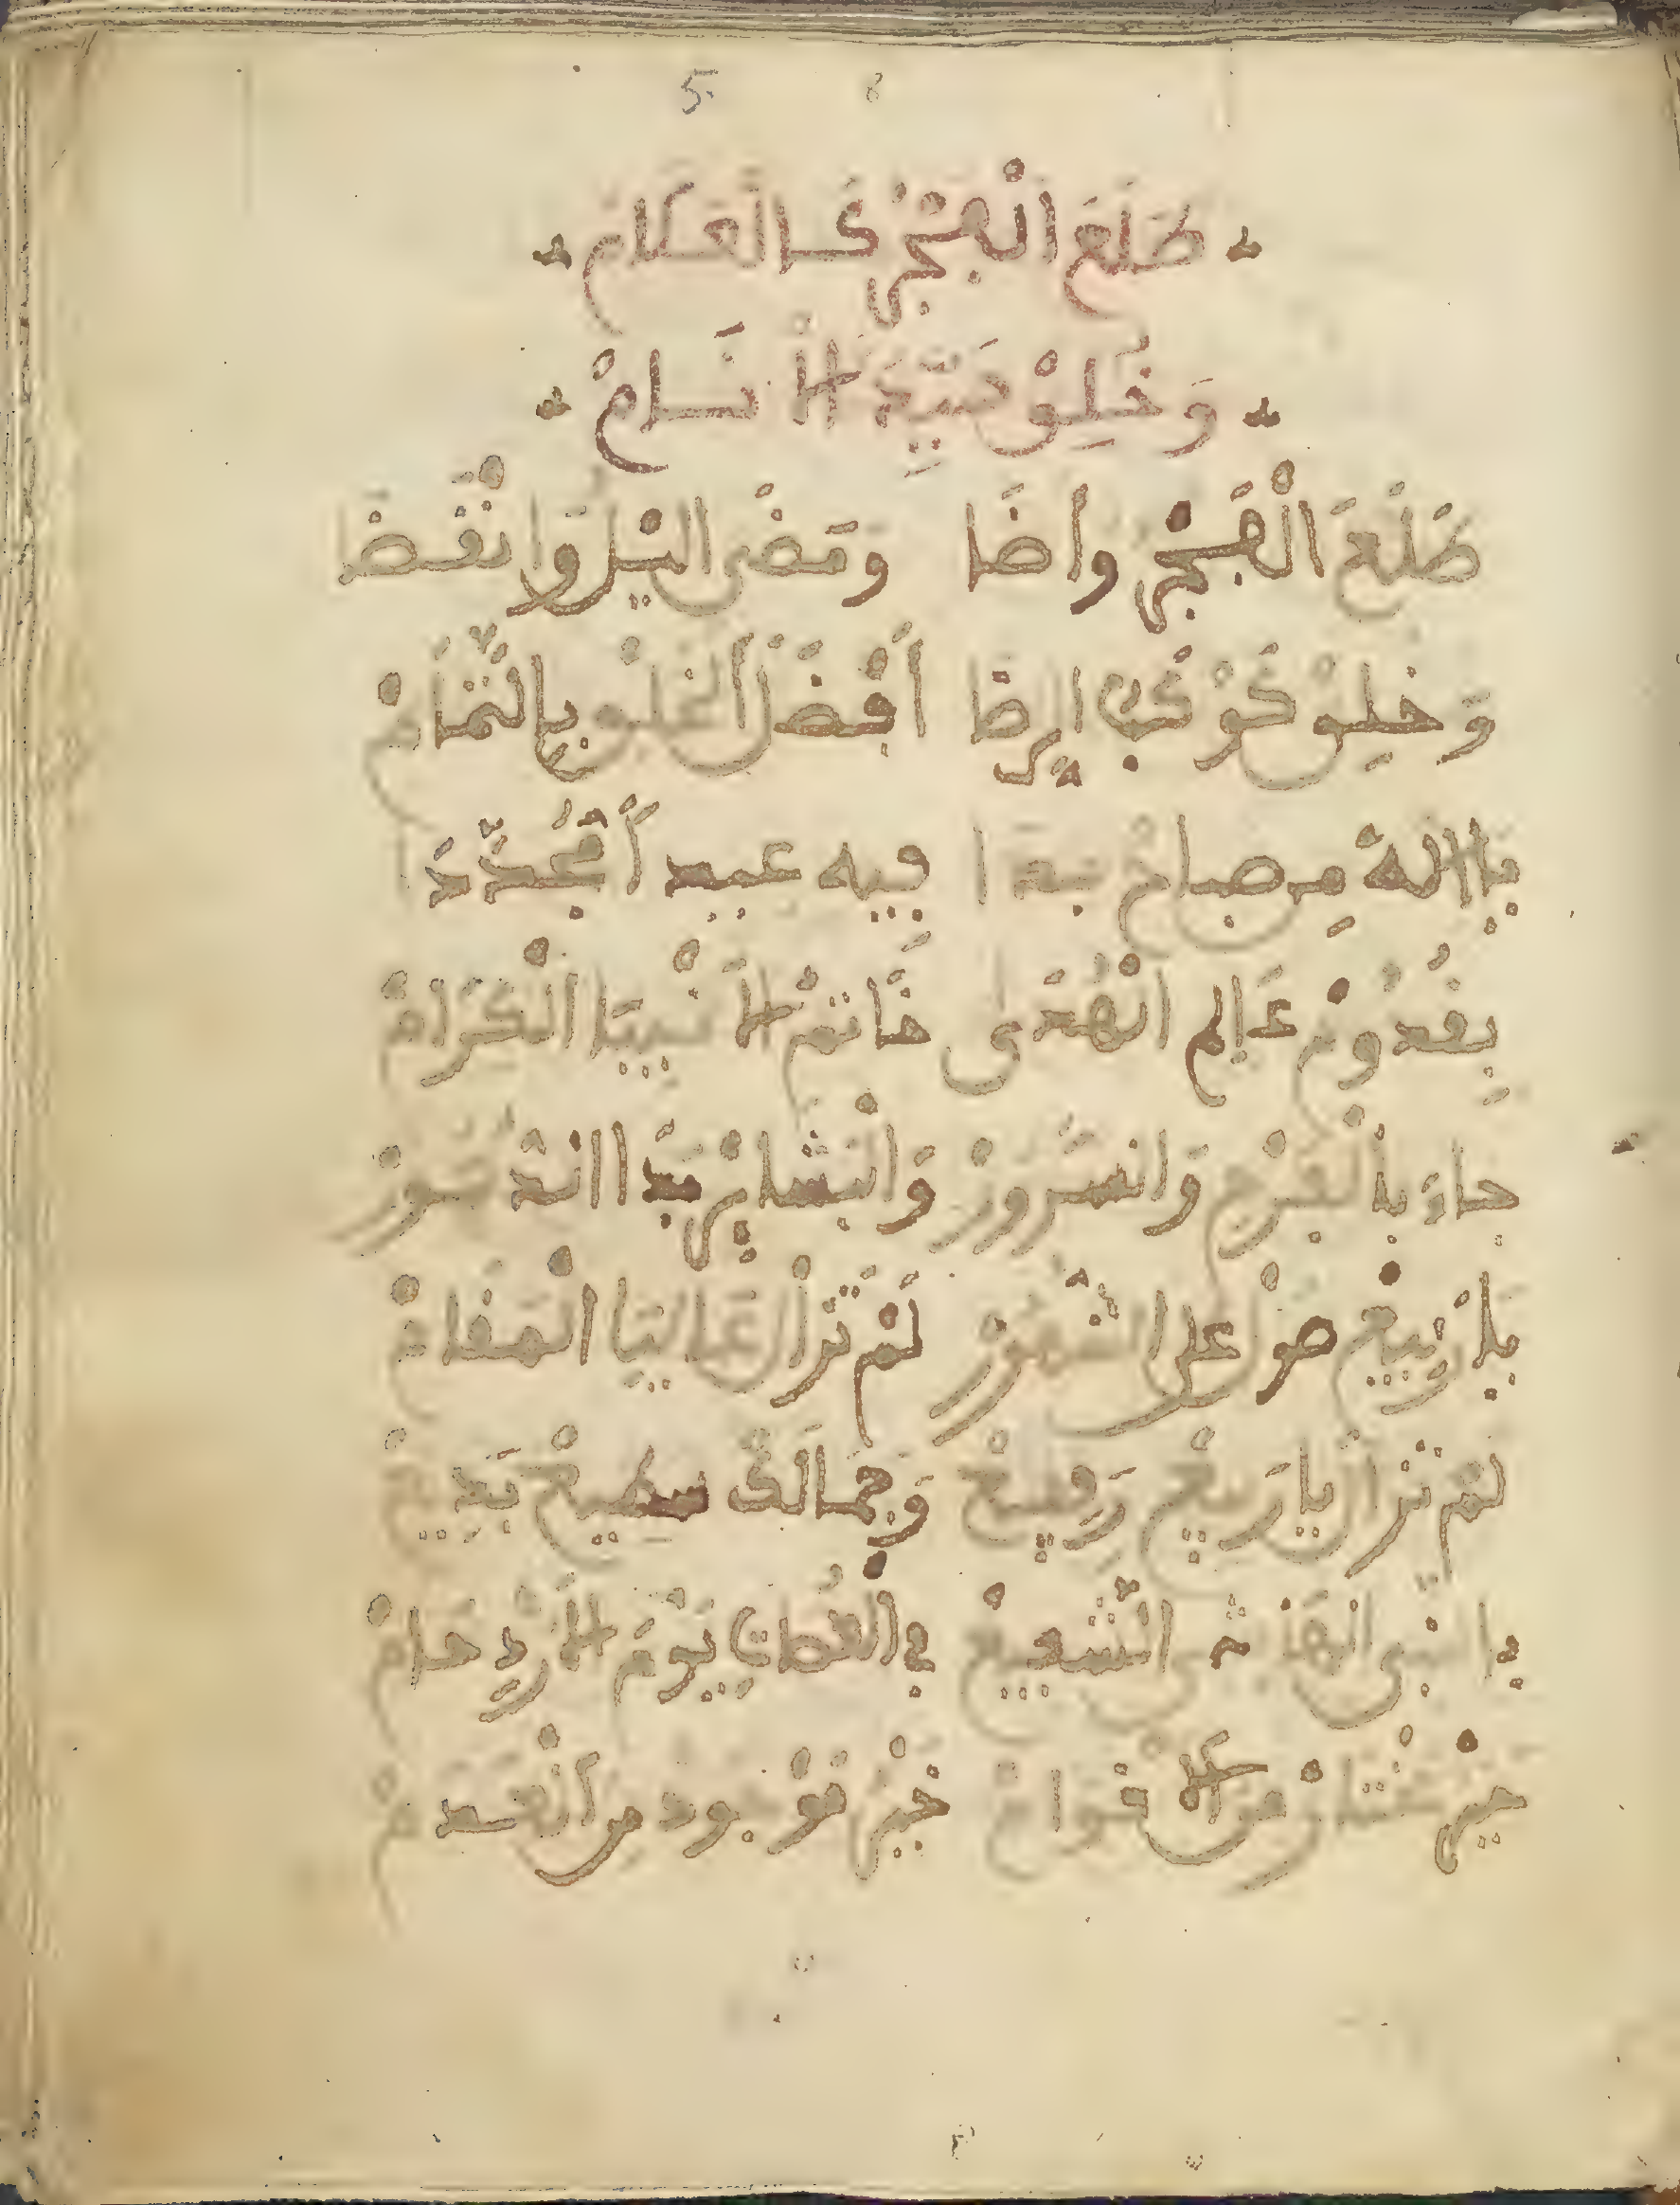 5 8
طَلَعَ الْفَجْرُ كَالْعَلَامْ
وَخُلِقْ سَيِّدَ الْأَنَامْ
طَلَعَ الْفَجْرْ وأضَا ومَضْى اليْلْ وَانْقَضَ
وَخُلِقْ كَوْكَبُ الرضَا أَفْضَلْ الخلْق بِالتَّمَامْ
يا الهُ مِ صباحْ بدا فيه عيد أمُجَدَّدَا
بِقدُومْ عَالِم الْهُدَى خَاتمْ الأَنْبِيَا الْكِرَامْ
جاءَ بالْفرْح وَالسُّرُورْ وَالْبَشَايِرْ بَدَا الصُّدُورْ
يَا رَبِيعْ صوْل على الشّهُورْ لَمْ تَزَلْ عَالِيَا الْمَقَامْ
لمْ تزلْ يا رَبيعْ رَفِيعْ وَجَمَالَكْ سطِيعْ بَدِيعْ
يا النّبي الهَاشمي الشّفِيعْ في العُصَاتِ يَوْمَ الازْدِحَامْ
خيرْ مُخْتارْ من الأقْوامْ خَيْرْ مَوْجود من الْعدمْ